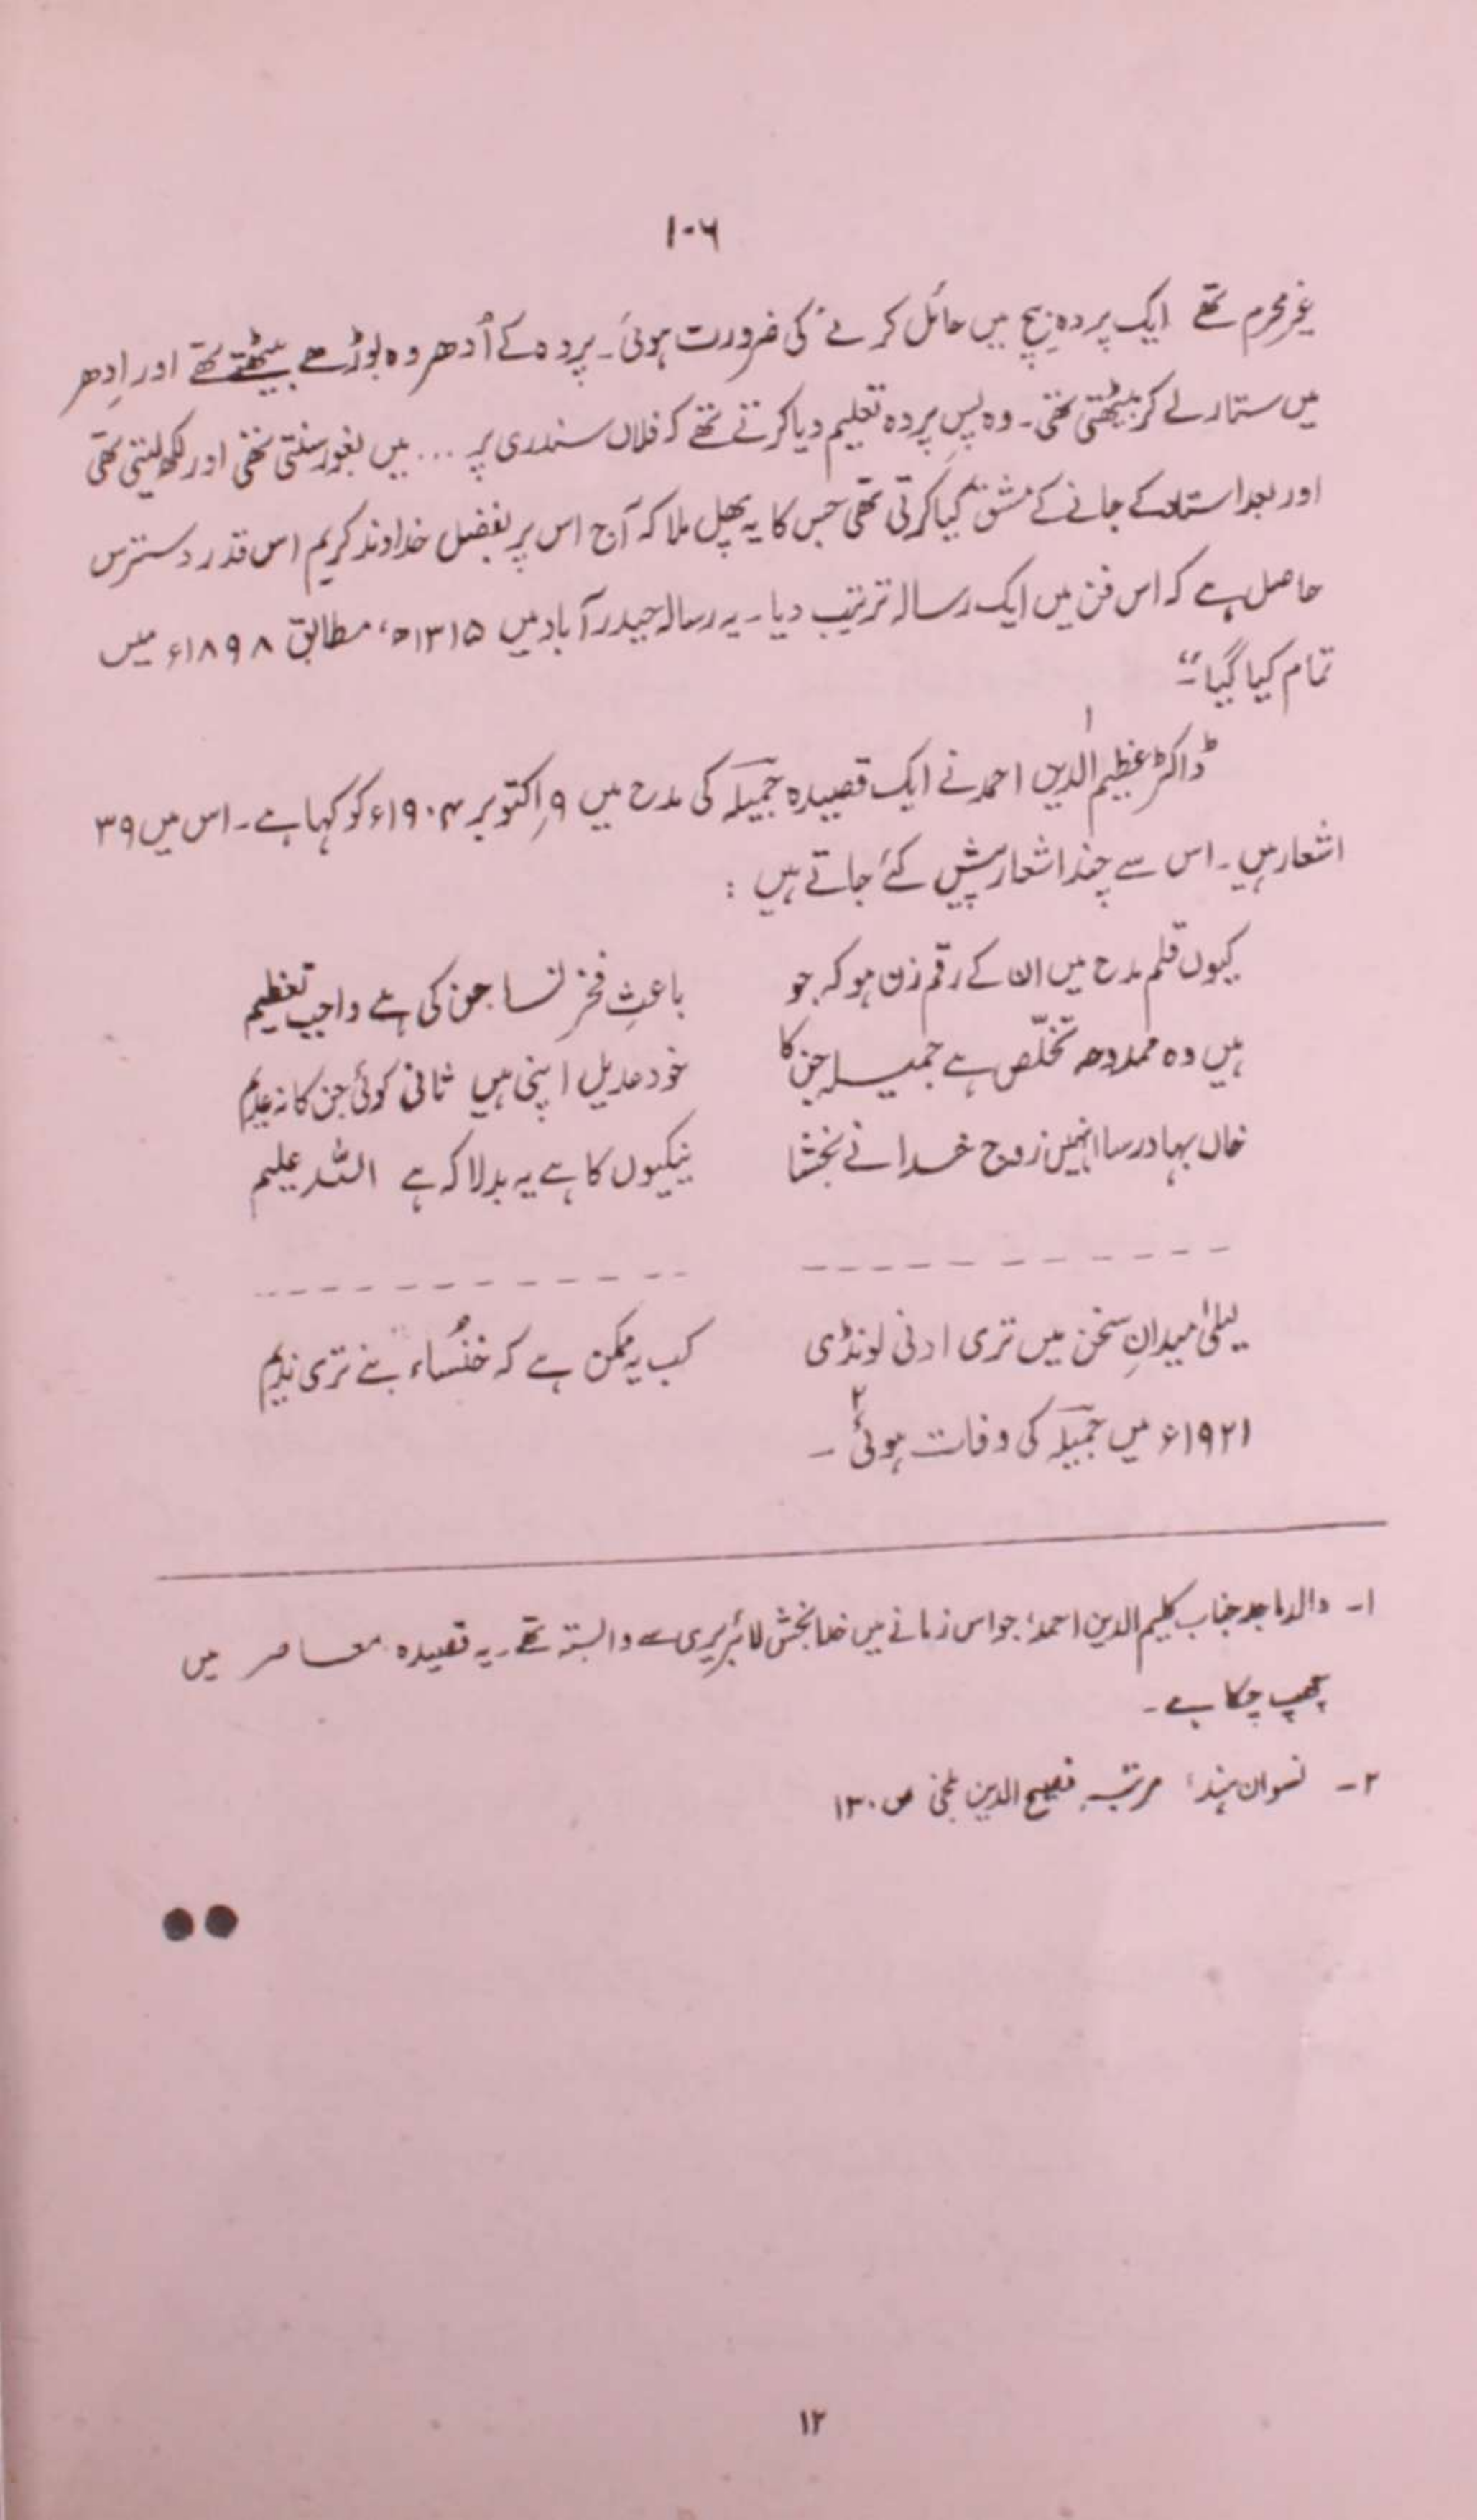 ۱۰۶
غیر محرم تھے ایک پردہ بیچ میں حائل کرنے کی ضرورت ہوئی۔ پردہ کے اُدھر وہ بوڑھے بیٹھتے تھے اور اِدھر
میں ستار لے کر بیٹھتی تھی۔ وہ پسِ پردہ تعلیم دیا کرتے تھے کہ فلاں سندری پر ... میں بغور سنتی تھی اور لکھ لیتی تھی
اور بعد استاد کے جانے کے مشق کیا کرتی تھی جس کا یہ پھل ملا کہ آج اس پر بفضل خداوند کریم اس قدر دسترس
حاصل ہے کہ اس فن میں ایک رسالہ ترتیب دیا۔ یہ رسالہ حیدرآباد میں ۱۳۱۵ھ، مطابق ۱۸۹۸ء میں
تمام کیا گیا“۔
ڈاکٹر عظیم الدین احمد۱ نے ایک قصیدہ جمیلہ کی مدح میں ۹ اکتوبر ۱۹۰۴ء کو کہا ہے۔ اس میں ۳۹
اشعار ہیں۔ اس سے چند اشعار پیش کئے جاتے ہیں :
کیوں قلم مدح میں ان کے رقم زن ہو کہ جو باعثِ فخر نسا جن کی ہے واجب تعظیم
ہیں وہ ممدوحہ تخلّص ہے جمیلہ جن کا خود عدیل اپنی ہیں ثانی کوئی جن کا نہ عدیم
خاں بہادر سا انہیں زوج خدا نے بخشا نیکیوں کا ہے یہ بدلا کہ ہے اللہ علیم
لیلیٰ میدانِ سخن میں تری ادنی لونڈی کب یہ ممکن ہے کہ خنُساء بنے تری ندیم
۱۹۲۱ء میں جمیلہ کی وفات ہوئی۲۔
۱۔ والد ماجد جناب کلیم الدین احمد؛ جو اس زمانے میں خدا بخش لائبریری سے وابستہ تھے۔ یہ قصیدہ معاصر میں
چھپ چکا ہے۔
۲۔ نسوان ہند؛ مرتبہ فصیح الدین بلخی ص ۱۳۰
۱۲